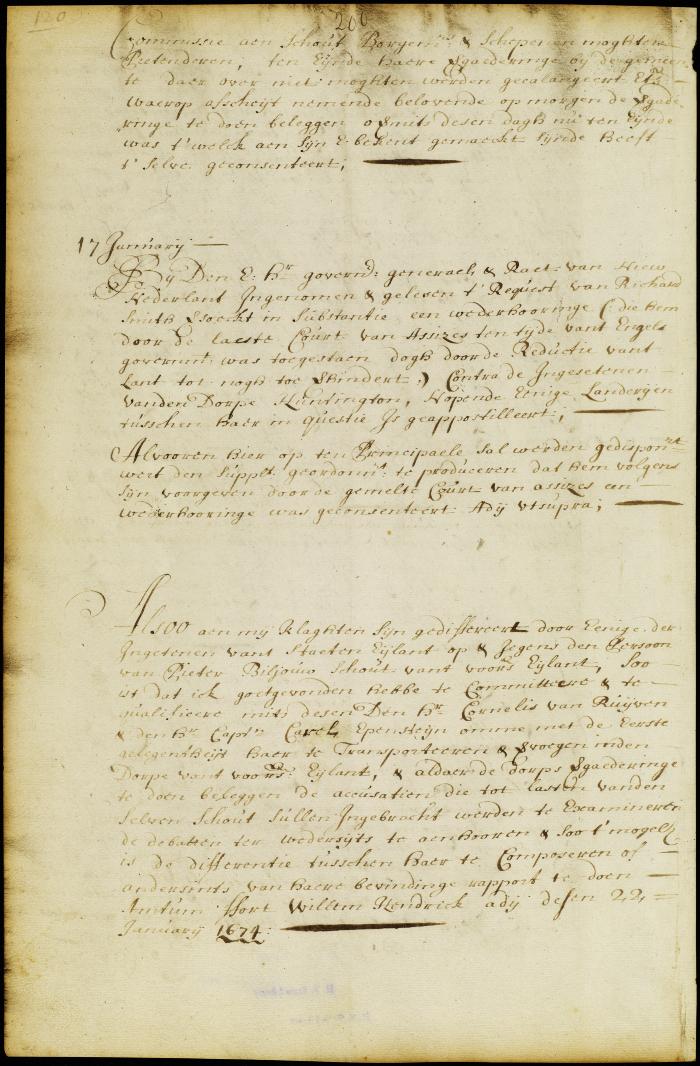 120
200
Commissie aen Schout Borgemrs & Schepenen moghten
Pretenderen, ten Eynde haere vergaederinge by de gemeen
te daer over niet moghten werden gecalangeert Etc
waerop afscheyt nemende belovende op morgen de vergade
ringe te doen beleggen o mits desen dagh nu ten Eynde
was t'welck aen Syn E. bekent gemaeckt Synde heeft
t'selve geconsenteert;
17 Januarij
By Den E. Hr governr generael & Raet van Nieu
Nederlant Ingenomen & gelesen t' Request van Richard
Smith versoeckt in Substantie een wederhooringe (: die hem
door de laeste Court van Assizes ten tyde vant Engels
governmt was toegestaen dogh door de Reductie vant
Lant tot nogh toe verhindert :) Contra de Ingesetenen
vanden Dorpe Huntington, nopende Eenige Landeryen
tusschen haer in questie Is geappostilleert;
Alvooren hier op ten Principaele sal werden gedisponrt
wert den Supplt geordonnt te produceren dat hem volgens
syn voorgeven door de gemelte Court van assizes een
wederhooringe was geconsenteert Adij utsupra;
Alsoo aen my klaghten syn gedeffereert door Eenige der
Ingesetenen vant Staeten Eylant op & Jegens den Persoon
van Pieter Biljouw Schout vant voors Eylant, Soo
ist dat ick goetgevonden hebbe te Committeere & te
qualificere mits desen Den Hr Cornelis van Ruijven
& den Hr Captn Carel Epensteijn omme met de Eerste
gelegentheijt haer te Transporteeren & voegen inden
Dorpe vant voors Eylant, & aldaer de dorps vergaederinge
te doen beleggen de accusatien die tot lasten vanden
selven Schout sullen Ingebracht werden te Examineren
de debatten ter wedersijts te aenhooren & soo t' mogelk
is de differentie tusschen haer te Composeren of
andersints van haere bevindinge rapport te doen
Actum ffort Willem Hendrick adij desen 22
Januarij 1674.